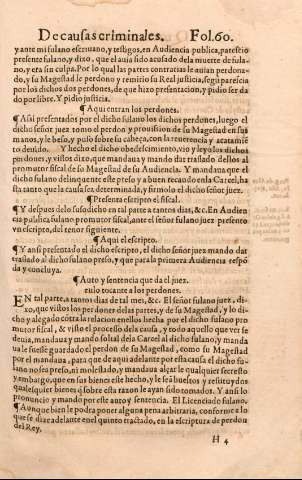 De causas criminales. Fol.60.
y ante mi fulano escriuano, y testigos, en Audiencia publica, parescio
presente fulano, y dixo, que el auia sido acusado dela muerte de fula-
no, y era sin culpa. Por lo qual las partes contrarias le auian perdona-
do, y su Magestad le perdono y remitio su Real justicia, segũ parescia
por los dichos dos perdones, de que hizo presentacion, y pidio ser da
do por libre. Y pidio justicia.
¶ Aqui entran los perdones.
¶ Assi presentados por el dicho fulano los dichos perdones, luego el
dicho señor juez tomo el perdon y prouision de su Magestad en sus
manos, y le beso, y puso sobre su cabeça, con la reuerencia y acatamiẽ
to deuido. Y hecho el dicho obedescimiento, vio y leyo los dichos
perdones, y vistos dixo, que mandaua y mando dar traslado dellos al
promutor fiscal de su Magestad de su Audiencia. Y mandaua que el
dicho fulano delinquente este preso y a buen recaudo en la Carcel, ha
sta tanto que la causa sea determinada, y firmolo el dicho señor juez.
¶ Presenta escripto el fiscal.
¶ Y despues de lo susodicho en tal parte a tantos dias, &c. En Audien
cia publica, fulano promutor fiscal, ante el señor fulano juez presento
vn escripto, del tenor siguiente.
¶ Aqui el escripto.
¶ Y ansi presentado el dicho escripto, el dicho señor juez mando dar
traslado al dicho fulano preso, y que para la primera Audiencia respõ
da y concluya.
¶ Auto y sentencia que da el juez.
tocante a los perdones.
EN tal parte, a tantos dias de tal mes, &c. El señor fulano juez, di-
xo, que vistos los perdones delas partes, y de su Magestad, y lo di-
cho y alegado cõtra la relacion en ellos hecha por el dicho fulano pro
mutor fiscal, & visto el processo dela causa, y todo aquello que ver se
deuia, mandaua y mando soltar dela Carcel al dicho fulano, y manda
ua le fuesse guardado el perdon de su Magestad, como su Magestad
por el mandaua, para que de aqui adelante por esta causa el dicho fu-
lano no sea preso, ni molestado, y mandaua alçar le qualquier secresto
y embargo, que en sus bienes este hecho, y le seã bueltos y restituydos
qualesquier bienes que sobre esta razon le ayan sido tomados. Y ansi lo
pronuncio y mando por este auto y sentencia. El Licenciado fulano.
¶ Aunque bien le podra poner alguna pena arbitraria, conforme a lo
que se dize adelante en el quinto tractado, en la escriptura de perdon
del Rey.
H 4